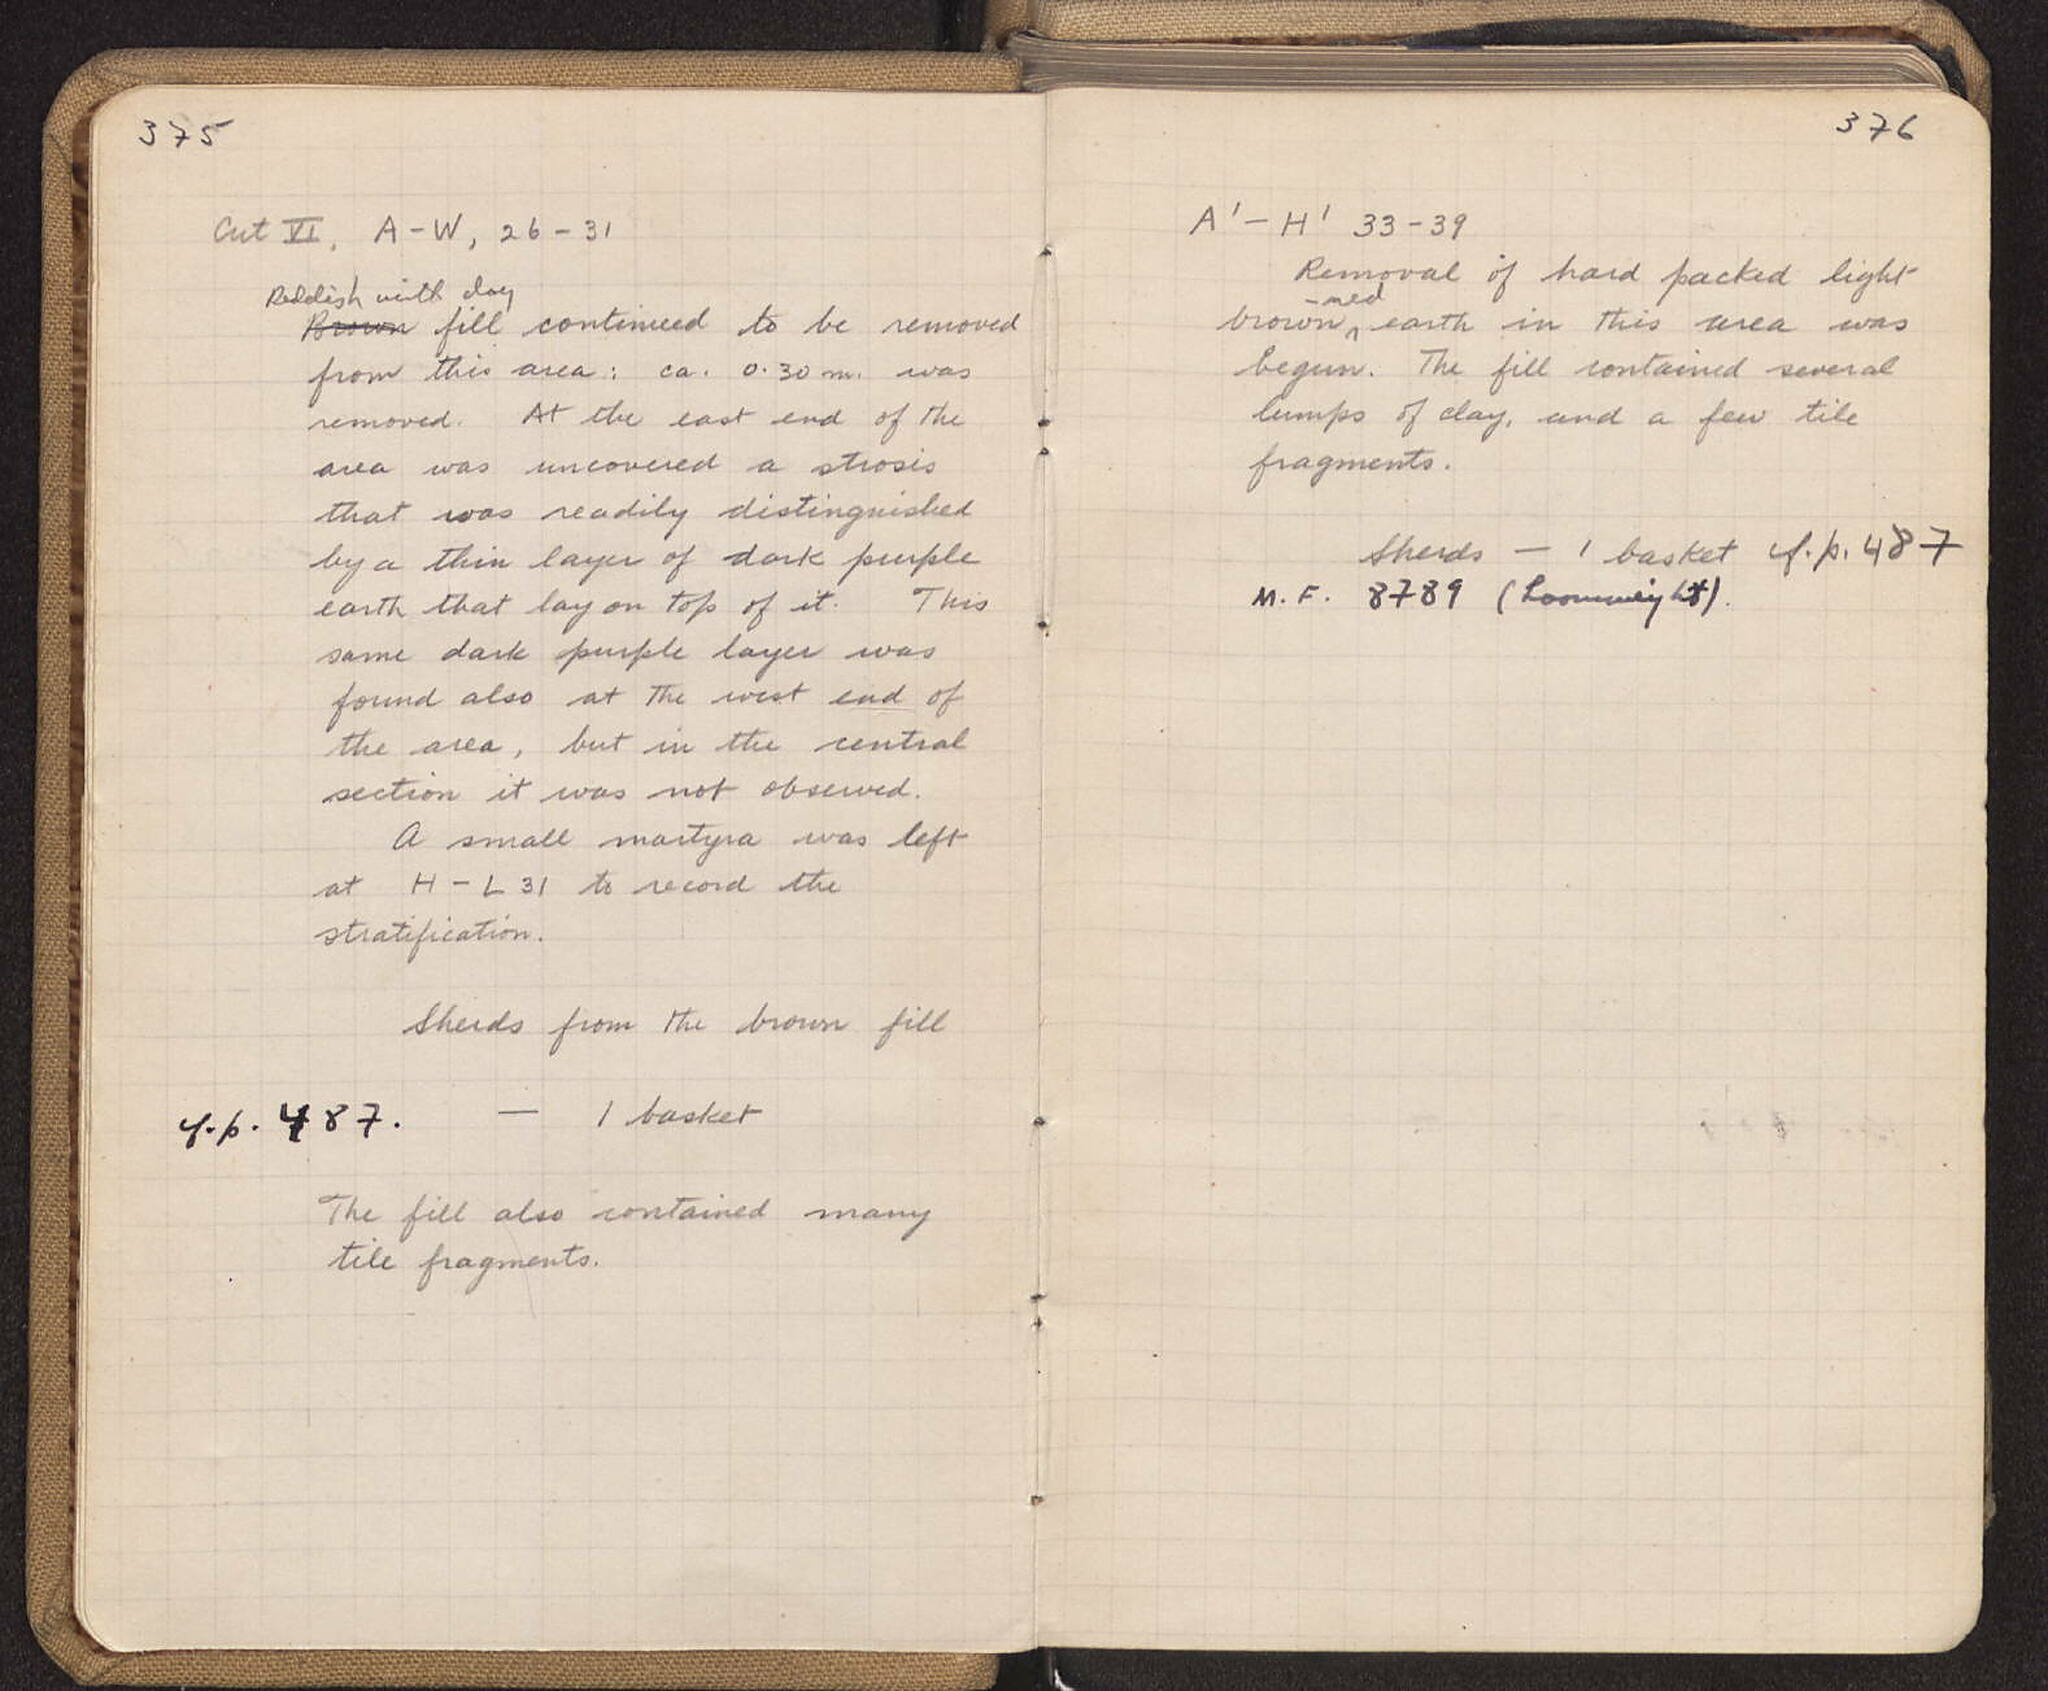 375
Cut VI, A-W, 26-31
Reddish with clay
Brown fill continued to be removed
from this area: ca. 0.30 m. was
removed. At the east end of the
area was uncovered a strosis
that was readily distinguished
by a thin layer of dark purple
earth that lay on top of it. This
same dark purple layer was
found also at the west end of
the area, but in the central
section it was not observed.
A small martyra was left
at H-L 31 to record the
stratification.
Sherds from the brown fill
cf. p. 487. — 1 basket
The fill also contained many
tile fragments.
376
A'-H' 33-39
Removal of hard packed light
-red
brown earth in this area was
begun. The fill contained several
lumps of clay, and a few tile
fragments.
Sherds — 1 basket cf. p. 487
M.F. 8789 (Loomweight).